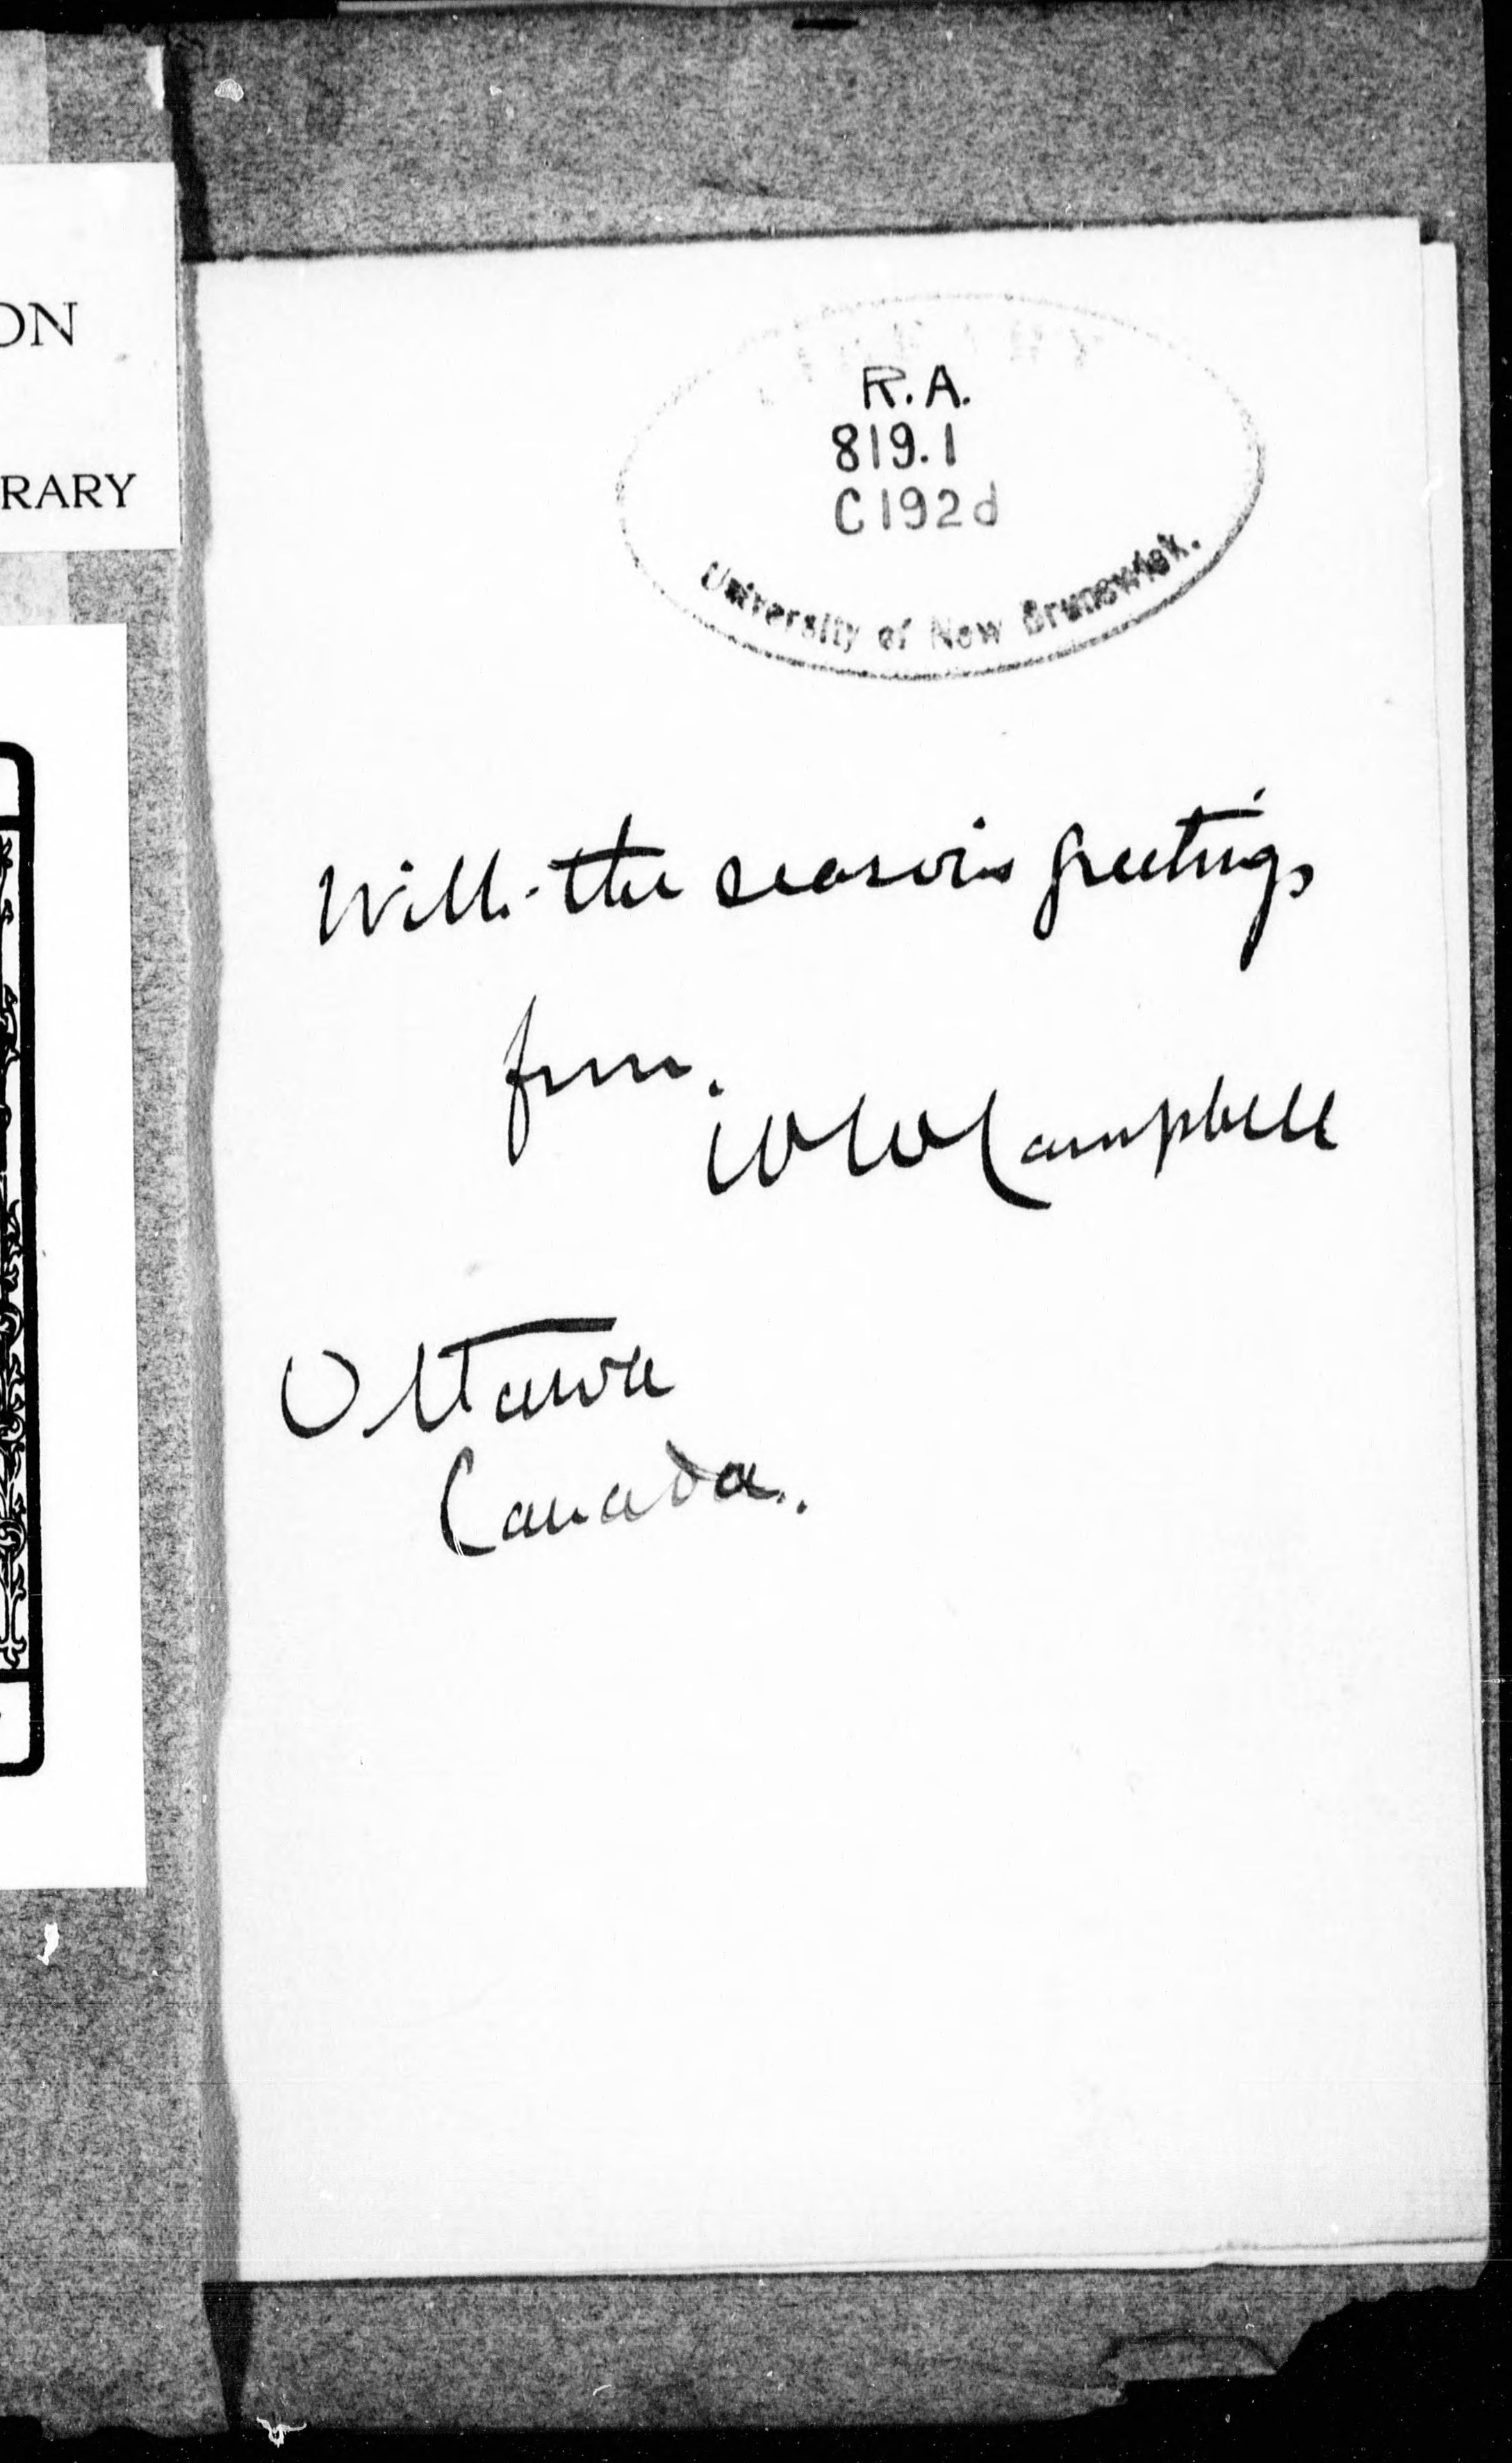 ON
RARY
R.A.
819.1
C192d
University of New Brunswick.
With the season's greetings
from
WWCampbell
Ottawa
Canada.